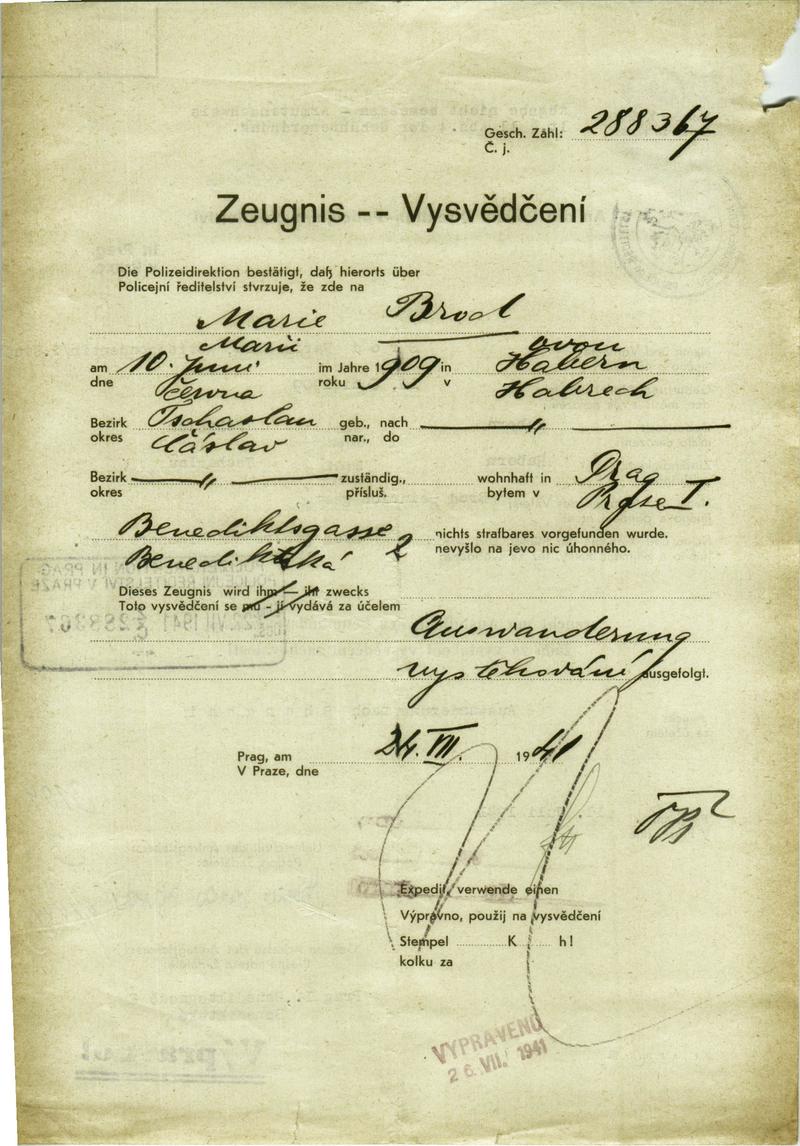 Gesch. Zahl: 288367
Č. j.
Zeugnis -- Vysvědčení
Die Polizeidirektion bestätigt, daß hierorts über
Policejní ředitelství stvrzuje, že zde na
Marie Brod
Marii
am 10. Juni im Jahre 1909 in Habern
dne června roku v Habrech
Bezirk Tschaslau geb., nach "
okres Čáslav nar., do
Bezirk " zuständig., wohnhaft in Prag
okres přísluš. bytem v Praze I.
Benediktsgasse nichts strafbares vorgefunden wurde.
Benediktská 2 nevyšlo na jevo nic úhonného.
Dieses Zeugnis wird ihm — ihr zwecks
Toto vysvědčení se mu - jí vydává za účelem
Auswanderung
vystěhování ausgefolgt.
Prag, am 24. VII. 1941
V Praze, dne
Expedit, verwende einen
Výpravno, použij na vysvědčení
Stempel K h!
kolku za
VYPRAVENO
26. VII. 1941